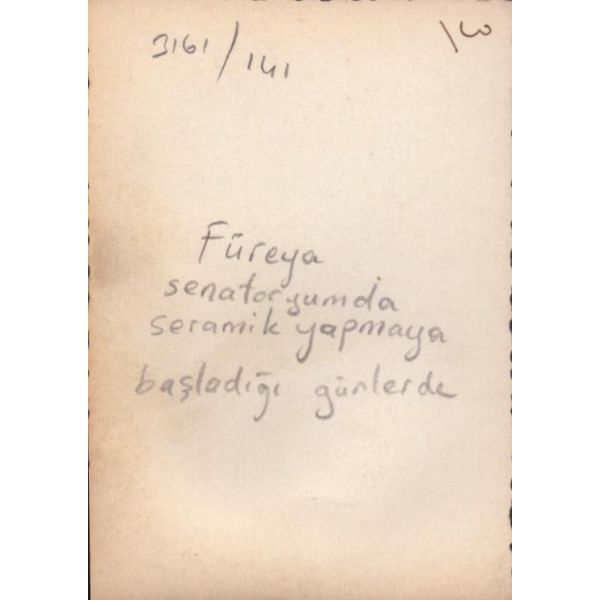 3161/141
Füreya
senatoryumda
seramik yapmaya
başladığı günlerde